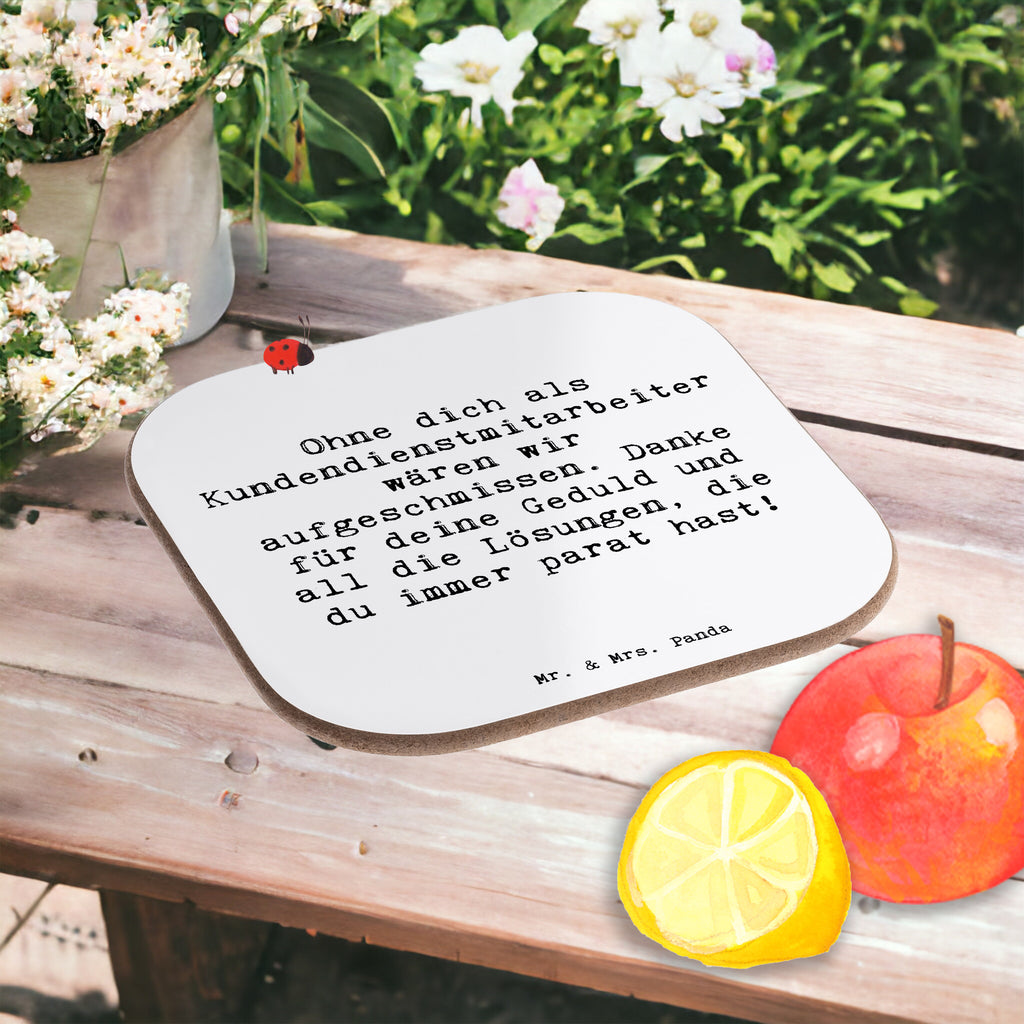 Ohne dich als
Kundendienstmitarbeiter
wären wir
aufgeschmissen. Danke
für deine Geduld und
all die Lösungen, die
du immer parat hast!
Mr. & Mrs. Panda